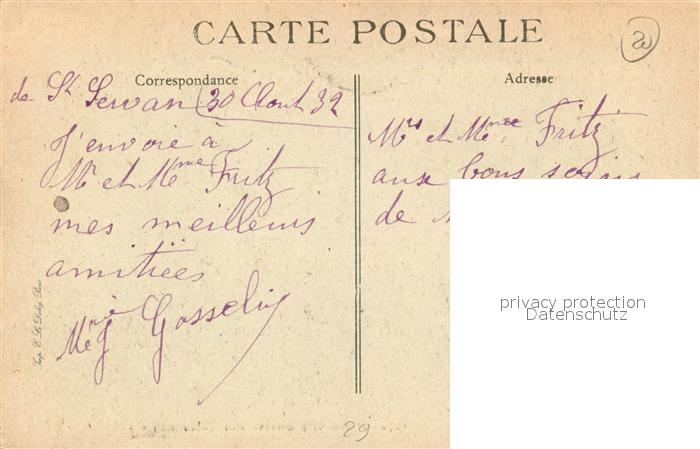 CARTE POSTALE
a
Correspondance
de St Servan 30 Aout 32
J'envoie à
Mr et Mme Fritz
mes meilleurs
amitiées
Gosselin
Adresse
Mr et Mme Fritz
aux bons soins
de
privacy protection
Datenschutz
29